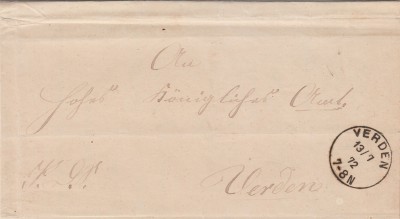 An
Hohes Königliches Amt
Verden
VERDEN
13/7
72
7-8N